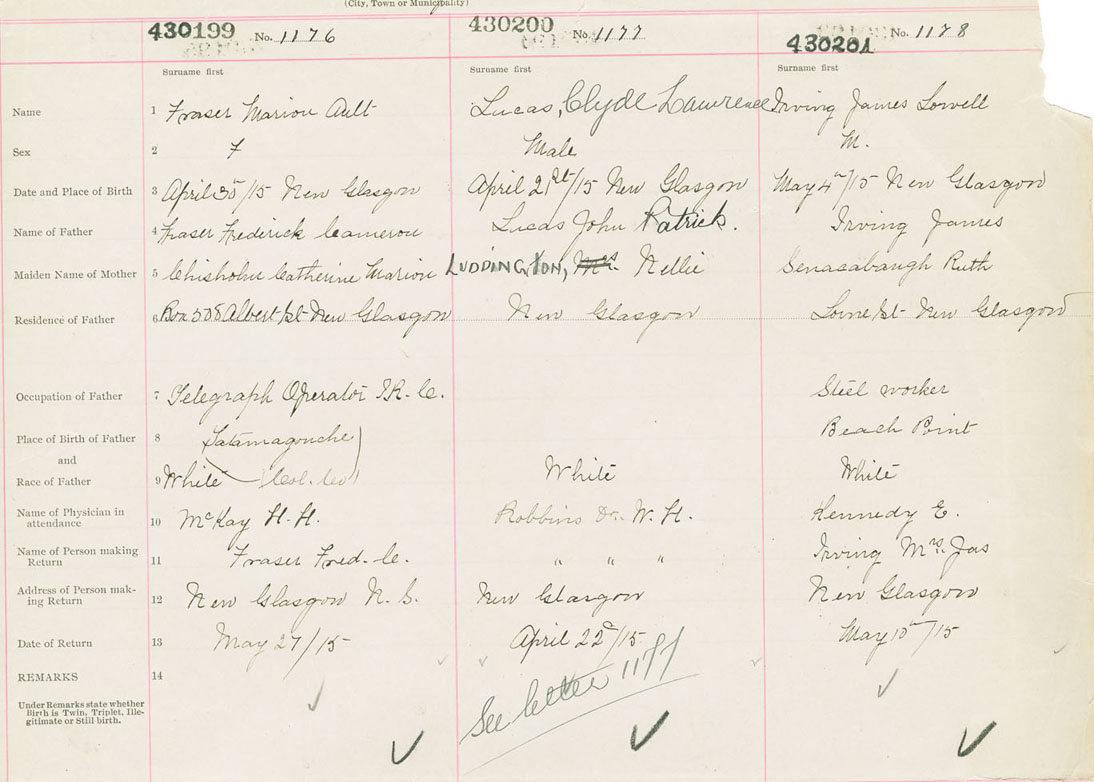 (City, Town or Municipality)
430199 No. 1176 430200 No. 1177 430201 No. 1178
Surname first Surname first Surname first
Name 1 Fraser Marion Ault Lucas, Clyde Lawrence Irving James Lowell
Sex 2 F Male M.
Date and Place of Birth 3 April 30/15 New Glasgow April 21st/15 New Glasgow May 4th/15 New Glasgow
Name of Father 4 Fraser Frederick Cameron Lucas John Patrick. Irving James
Maiden Name of Mother 5 Chisholm Catherine Marion LUDDINGTON, Mrs. Nellie Senasabaugh Ruth
Residence of Father 6 Box 508 Albert St New Glasgow New Glasgow Lorne St New Glasgow
Occupation of Father 7 Telegraph Operator I.R.C. Steel worker
Place of Birth of Father 8 Tatamagouche Beach Point
and
Race of Father 9 White Col. Co White White
Name of Physician in
attendance 10 McKay H. H. Robbins Dr. W. H. Kennedy E.
Name of Person making
Return 11 Fraser Fred. C. " " " Irving Mrs. Jas
Address of Person mak-
ing Return 12 New Glasgow N. S. New Glasgow New Glasgow
Date of Return 13 May 27/15 April 22d/15 May 15th/15
REMARKS 14
See letter 1177
Under Remarks state whether
Birth is Twin, Triplet, Ille-
gitimate or Still birth.